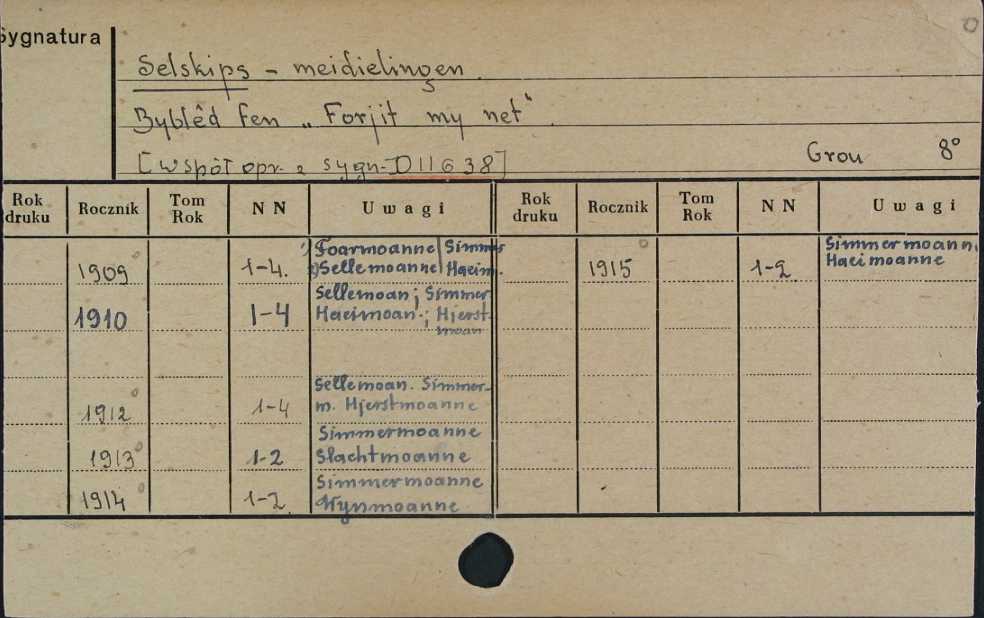 Sygnatura
Selskips - meidielingen.
Byblêd fen „Forjit my net“.
[współopr. z sygn. D 11638]
Grou 8°
Rok druku Rocznik Tom Rok NN Uwagi Rok druku Rocznik Tom Rok NN Uwagi
1909 1-4. 1) Foarmoanne Simmer
2) Sellemoanne Haeim.
1910 1-4 Sellemoan; Simmer
Haeimoan.; Hjerst-
moan
1912 1-4 Sellemoan. Simmer-
m. Hjerstmoanne
1913 1-2 Simmermoanne
Slachtmoanne
1914 1-2 Simmermoanne
Wynmoanne
1915 1-2 Simmermoann
Haeimoanne